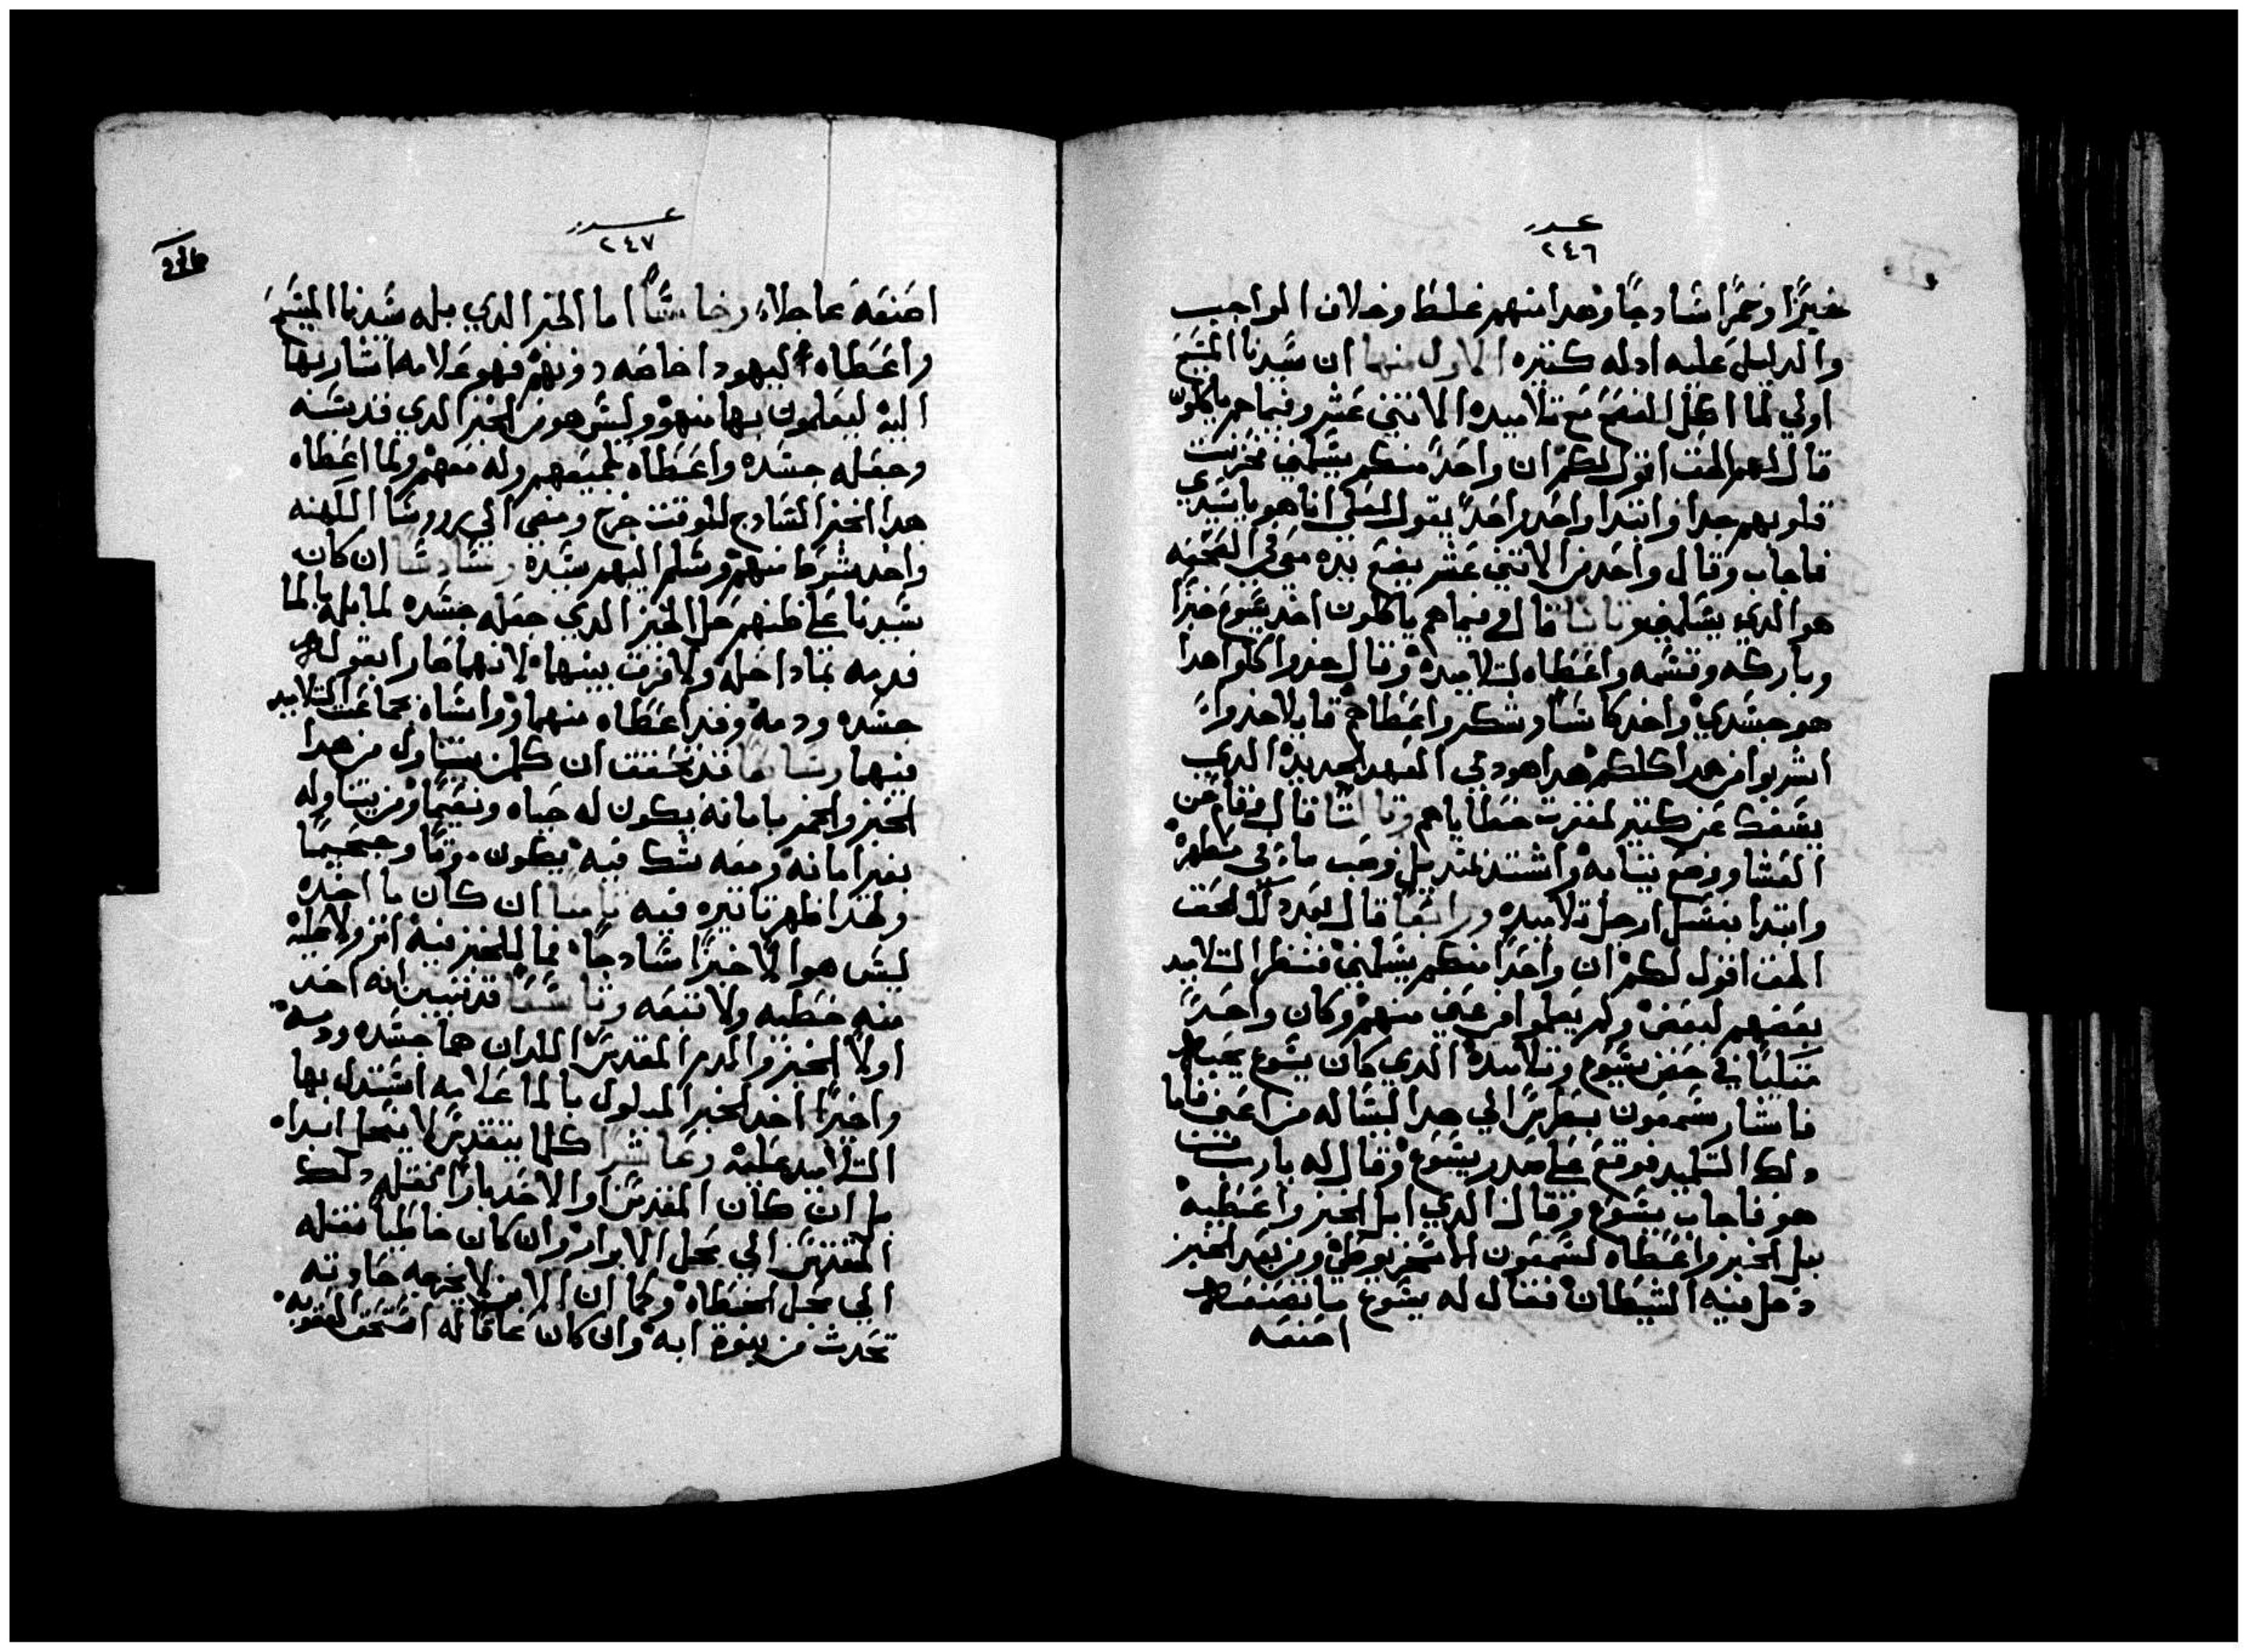 عدد
٢٤٦
خبزًا وخمرًا سادجًا وهدا منهم غلط وخلاف الواجب
والدليل عليه ادله كتيره الاول منها ان سيدنا المسيح
اولي لما اكل الفصح مع تلاميده الاتني عشر وفيما هم ياكلون
قال لهم الحق اقول لكم ان واحدًا منكم يسلمني فحزنت
قلوبهم جدا وابتدا واحد واحدًا يقول لعلي انا هو يا سيدي
فاجاب وقال واحد من الاتني عشر يضع يده معي في الصحفه
هو الدي يسلمني وتانيا قال وفيما هم ياكلون اخد يسوع خبزًا
وباركه وقسمه واعطاه لتلاميده وقال خدوا كلوا هدا
هو جسدي واخد كاسًا وشكر واعطاهم قايلا خدوا
اشربوا من هدا كلكم هدا هو دمي العهد الجديد الدي
يسفك عن كتير لمغفرت خطاياهم وتالتًا قال وقام عن
العشا ووضع تيابه واشتد بمنديل وصب ماء في مطهره
وابتدا بغسل ارجل تلاميده ورابعًا قال بعد دلك الحق
الحق اقول لكم ان واحدًا منكم يسلمني فنظر التلاميد
بعضهم لبعض ولم يعلموا من عني منهم وكان واحدًا
متكيًا في حضن يسوع وتلاميده الدي كان يسوع يحبه
فاشار سمعون بطرس الي هدا ليساله من اعني فاما
دلك التلميد فوقع علي صدر يسوع وقال له يا رب من
هو فاجاب يسوع وقال الدي ابل الخبز واعطيه
فبل الخبز واعطاه لسمعون الاسخريوطي ومن بعد الخبز
دخل فيه الشيطان فقال له يسوع ما تصنعه
اصنعه
عدد
٢٤٧
اصنعه عاجلا، وخامسًا اما الخبز الدي بله سيدنا المسيح
واعطاه ليهودا خاصه دونهم فهو علامه اشار بها
اليه ليعلمون بها منهو وليس هو من الخبز الدي قدسه
وجعله جسده واعطاه لجميعهم وله معهم ولما اعطاه
هدا الخبز السادج للوقت خرج ومضي الي رووسا الكهنه
واخد شرطا منهم وسلم اليهم سيده وسادسًا ان كان
سيدنا علي ظنهم حل الخبز الدي جعله جسده لما بله بالما
فدمه بما داحله ولا فرق بينهما لانهما صارا بقوله
جسده ودمه وقد اعطاه منهما وواساه بجماعت التلاميد
فيهما وسابعًا قد تحققت ان كلمن يتناول من هدا
الخبز والخمر بامانه يكون له حياه ونعيمًا ومن يتناوله
بغير امانه ومعه شك فيه يكون موتًا وجحيمًا
ولهدا ظهر تاتيره فيه تامنا ان كان ما اخده
ليس هو الا خبزًا سادجًا فما للخبز فيه اتر ولا عليه
منه خطيه ولا تبعه وتاسعًا قد تبين انه اخد
اولًا الخبز والدم المقدس اللدان هما جسده ودمه
واخيرًا اخد الخبز المبلول بالما علامه استدل بها
التلاميد عليه وعاشرا كلما يتقدس لا ينحل ابدا
بل ان كان المقدس والاخد بارًا نقله دلك
المقدس الي محل الابرار وان كان خاطيا نقله
الي محل الخطاه وكما ان الابن لا يخرجه حادته
تحدث من بنوة ابيه وان كان عاقا له استحق العقوبه